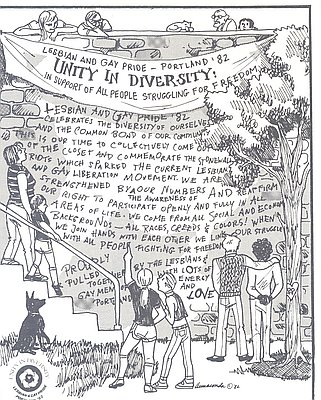 LESBIAN AND GAY PRIDE - PORTLAND '82
UNITY IN DIVERSITY:
IN SUPPORT OF ALL PEOPLE STRUGGLING FOR FREEDOM
LESBIAN AND GAY PRIDE '82
CELEBRATES THE DIVERSITY OF OURSELVES
AND THE COMMON BOND OF OUR COMMUNITY.
THIS IS OUR TIME TO COLLECTIVELY COME OUT
OF THE CLOSET AND COMMEMORATE THE STONEWALL
RIOTS WHICH SPARKED THE CURRENT LESBIAN
AND GAY LIBERATION MOVEMENT. WE ARE
STRENGTHENED BY OUR NUMBERS AND REAFFIRM
THE AWARENESS OF
OUR RIGHT TO PARTICIPATE OPENLY AND FULLY IN ALL
AREAS OF LIFE. WE COME FROM ALL SOCIAL AND ECONOMIC
BACKGROUNDS - ALL RACES, CREEDS & COLORS! WHEN
WE JOIN HANDS WITH EACH OTHER WE LINK OUR STRUGGLE
WITH ALL PEOPLE FIGHTING FOR FREEDOM.
PROUDLY
PULLED TOGETHER BY THE LESBIANS &
GAY MEN OF PORTLAND WITH LOTS OF
ENERGY
AND
LOVE
©'82
UNITY IN DIVERSITY
LESBIAN & GAY PRIDE